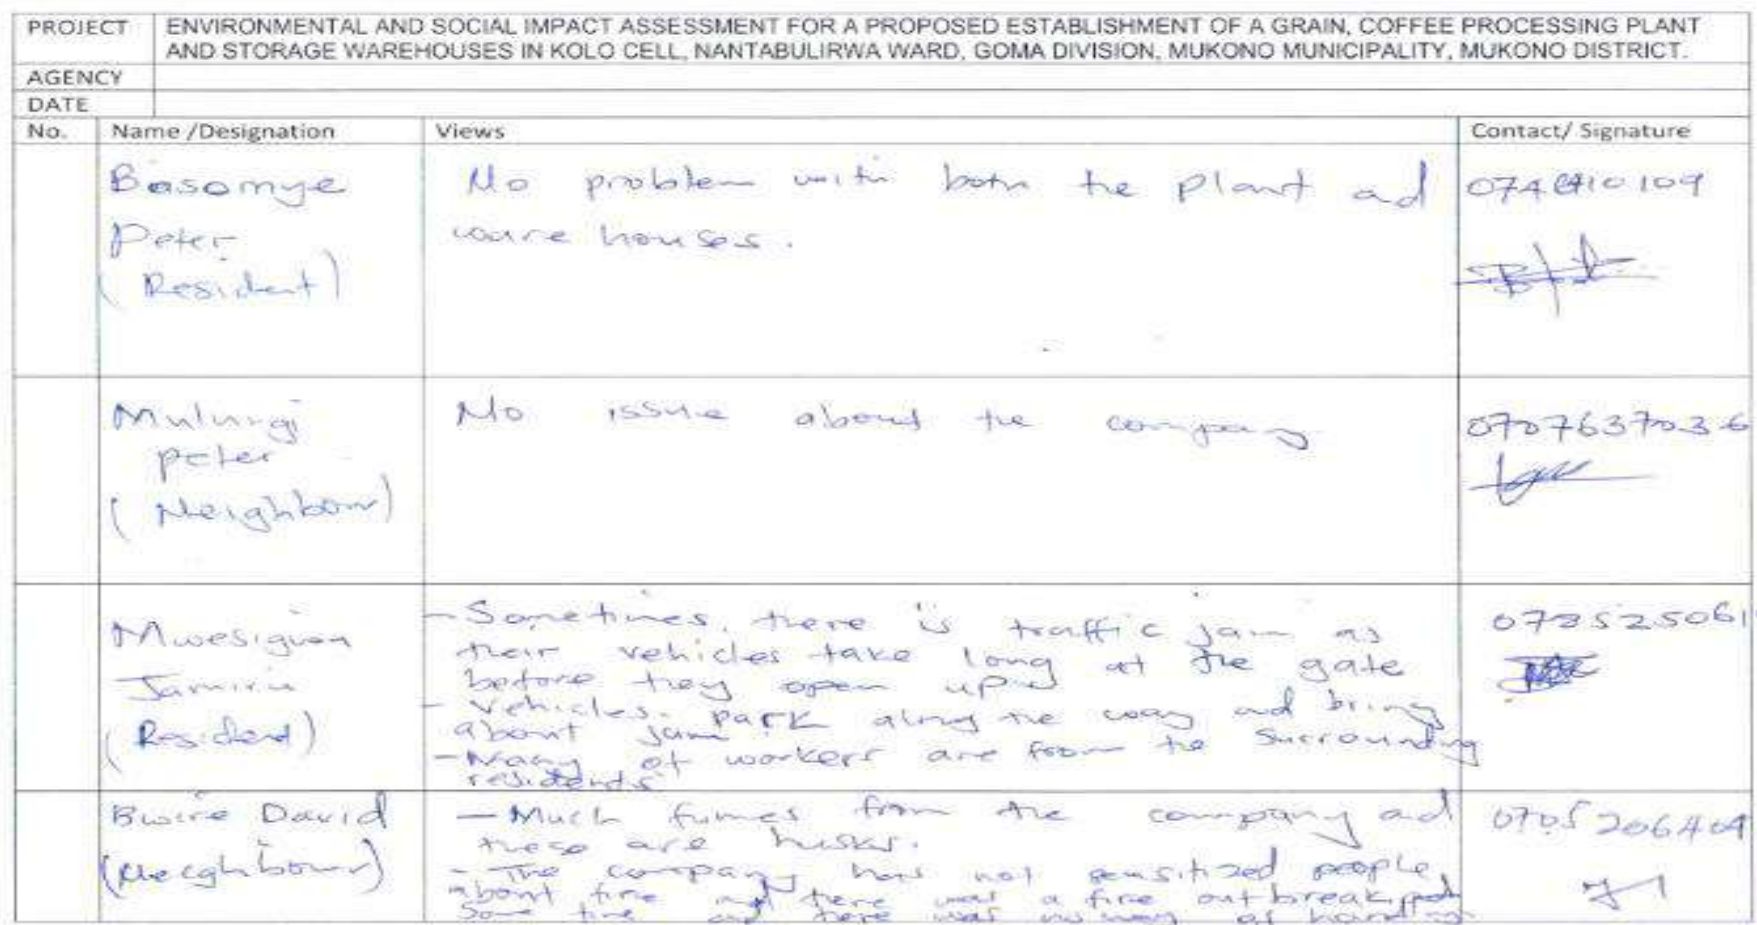 PROJECT ENVIRONMENTAL AND SOCIAL IMPACT ASSESSMENT FOR A PROPOSED ESTABLISHMENT OF A GRAIN, COFFEE PROCESSING PLANT
AND STORAGE WAREHOUSES IN KOLO CELL, NANTABULIRWA WARD, GOMA DIVISION, MUKONO MUNICIPALITY, MUKONO DISTRICT.
AGENCY
DATE
No. Name /Designation Views Contact/ Signature
Basomye No problem with both the plant ad
Peter ware houses.
(Resident)
Mulungi No issue about the company 0707637036
Peter
(Neighbour)
Mwesigwa - Sometimes, there is traffic jam as
Jamiru their vehicles take long at the gate
(Resident) before they open up
- Vehicles park along the way ad bring
about jam.
- Many of workers are from the surrounding
residents
Bwire David - Much fumes from the company ad 0705206404
(Neighbour) these are husks.
- The company has not sensitized people
about fire and there was a fire outbreak
some time and there was no way of